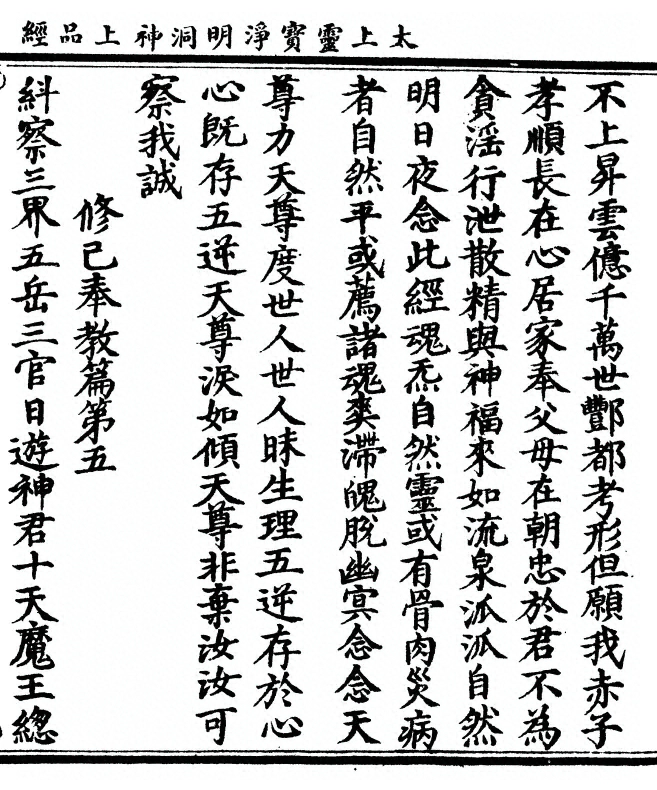 太上靈寶淨明洞神上品經
不上昇雲億千萬世酆都考形但願我赤子
孝順長在心居家奉父母在朝忠於君不為
貪淫行泄散精與神福來如流泉派派自然
明日夜念此經魂炁自然靈或有骨肉災病
者自然平或薦諸魂爽滯魄脫幽冥念念天
尊力天尊度世人世人昧生理五逆存於心
心既存五逆天尊淚如傾天尊非棄汝汝可
察我誠
修己奉教篇第五
糾察三界五岳三官日遊神君十天魔王總